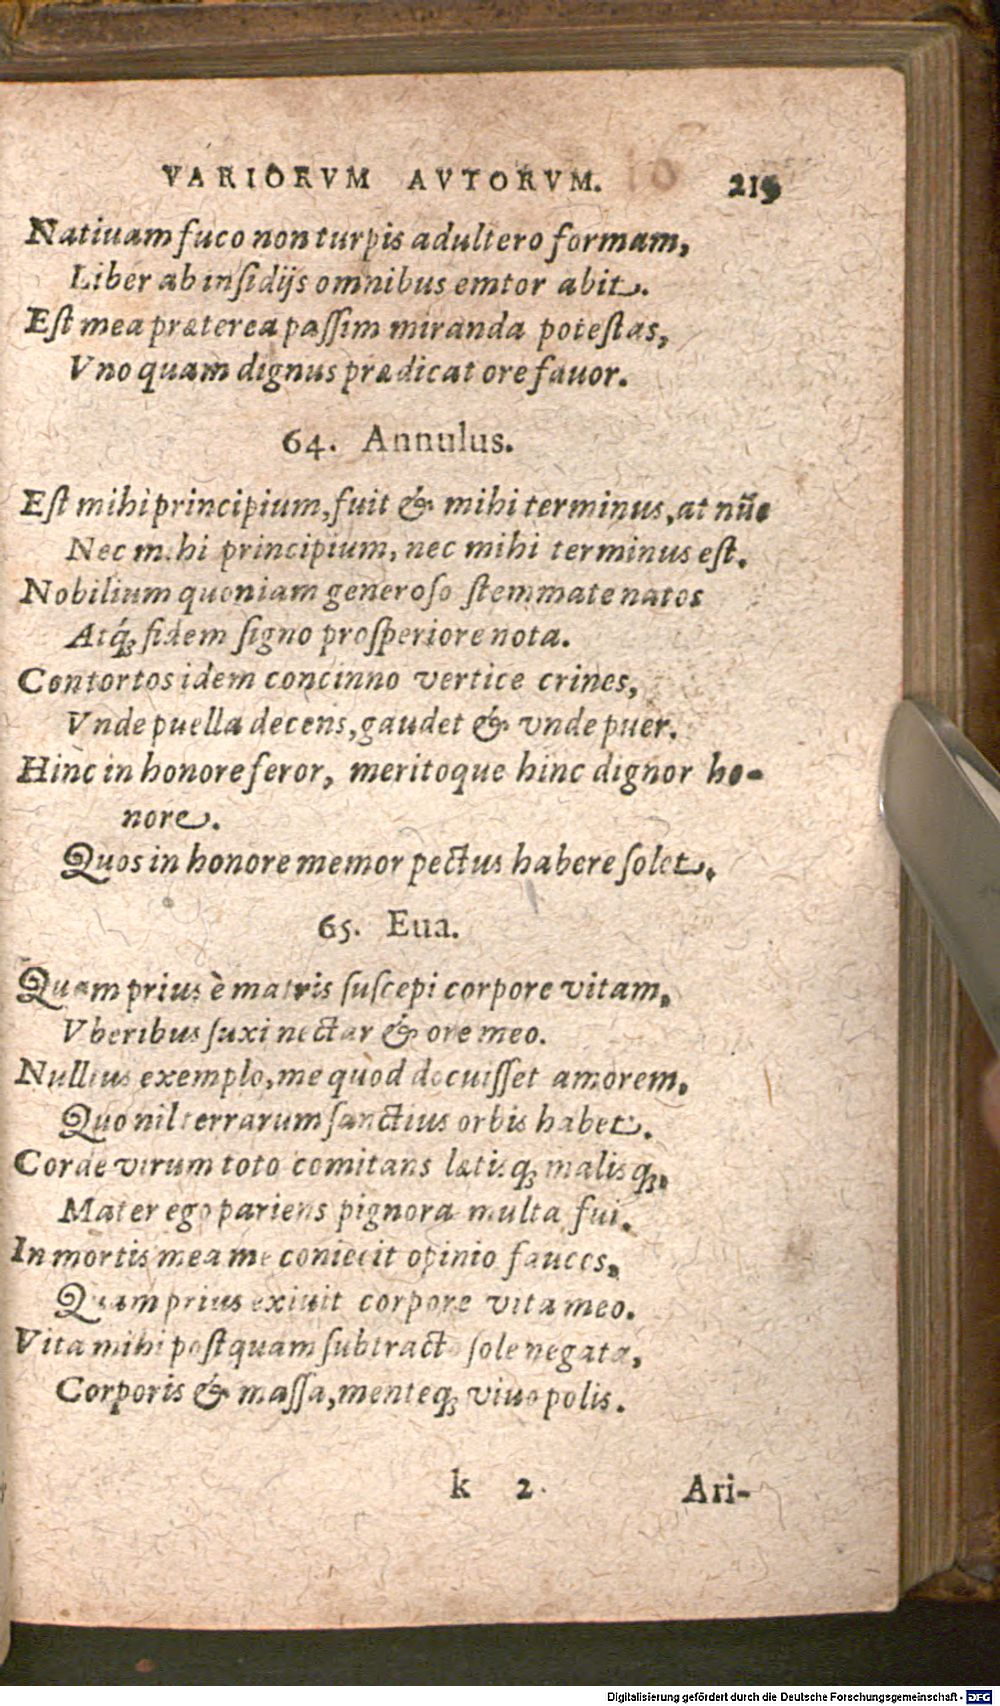 VARIORVM AVTORVM. 219
Natiuam fuco non turpis adultero formam,
Liber ab insidijs omnibus emtor abit.
Est mea præterea passim miranda potestas,
Vno quam dignus prædicat ore fauor.
64. Annulus.
Est mihi principium, fuit & mihi terminus, at nūc
Nec mihi principium, nec mihi terminus est.
Nobilium quoniam generoso stemmate natos
Atq́; fidem signo prosperiore nota.
Contortos idem concinno vertice crines,
Vnde puella decens, gaudet & vnde puer.
Hinc in honore feror, meritoque hinc dignor ho-
nore.
Quos in honore memor pectus habere solet.
65. Eua.
Quam prius è matris suscepi corpore vitam,
Vberibus suxi nectar & ore meo.
Nullius exemplo, me quòd docuisset amorem,
Quo nil terrarum sanctius orbis habet.
Corde virum toto comitans lætisq; malisq;,
Mater ego pariens pignora multa fui.
In mortis mea me coniecit opinio fauces,
Quam prius exiuit corpore vita meo.
Vita mihi postquam subtracto sole negata,
Corporis & massa, menteq; viuo polis.
k 2. Ari-
Digitalisierung gefördert durch die Deutsche Forschungsgemeinschaft - DFG